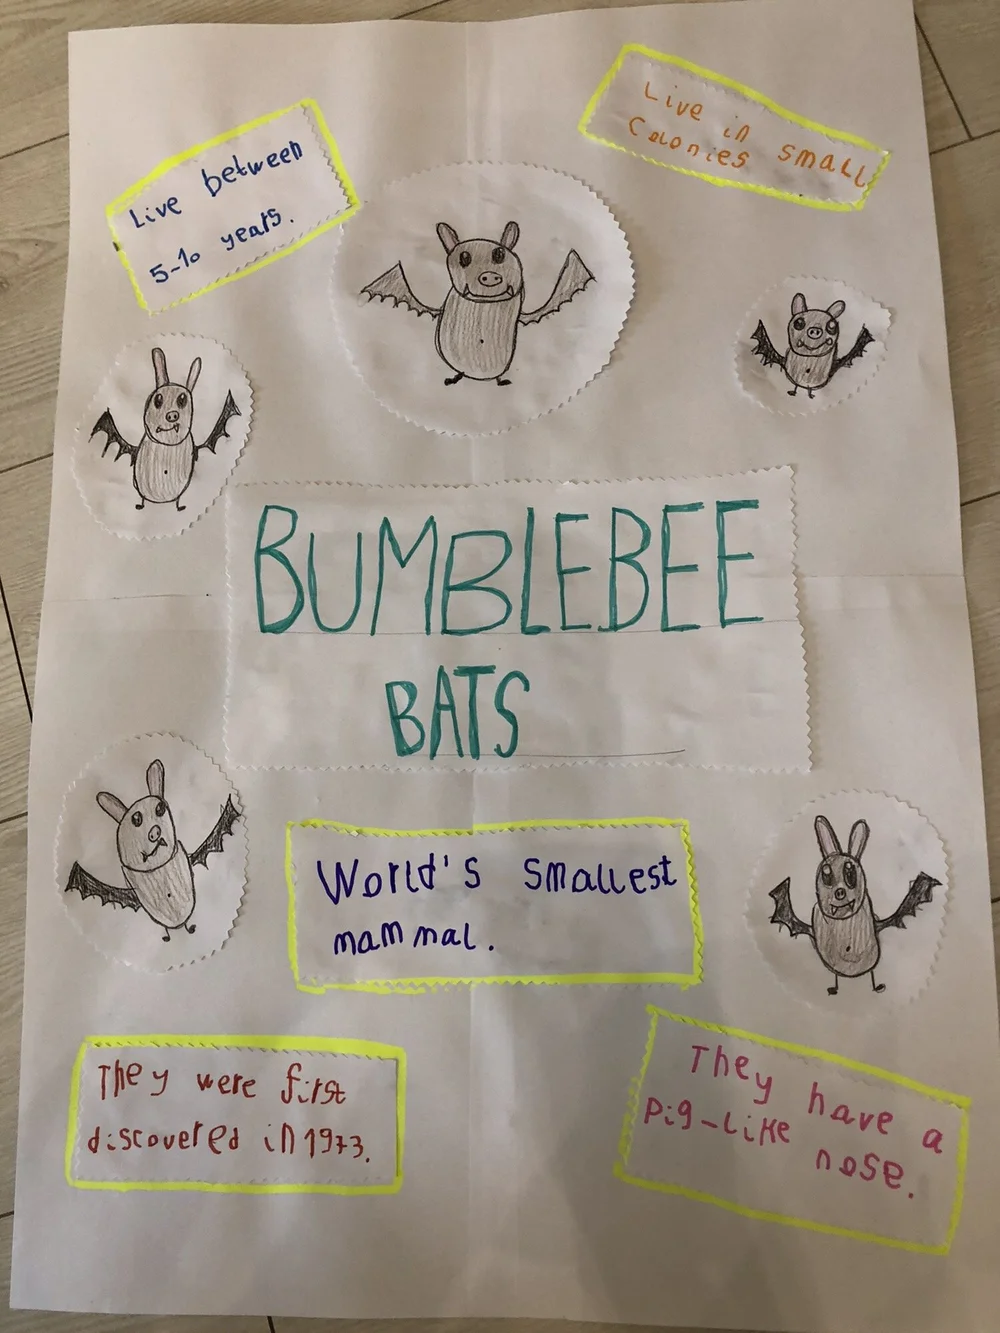 Live between
5-10 years.
Live in small
Colonies
BUMBLEBEE
BATS
World's smallest
mammal.
They were first
discovered in 1973.
They have a
pig-like nose.